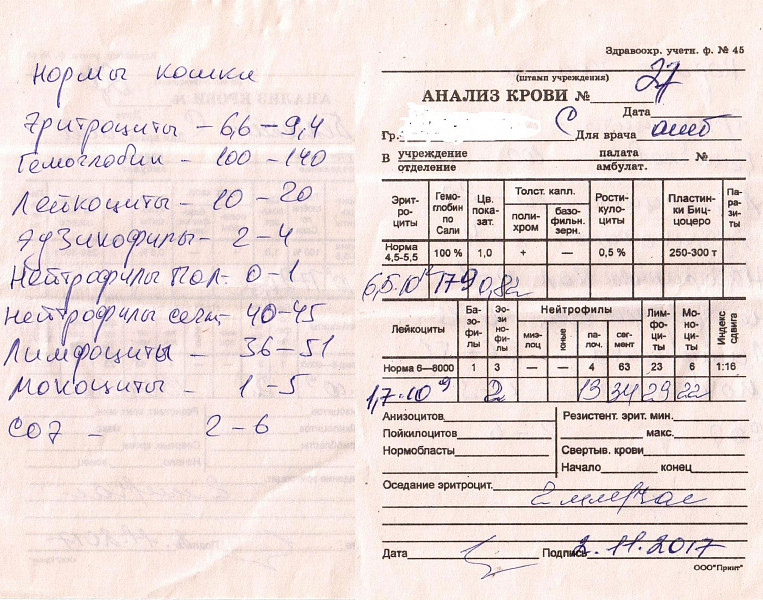 Нормы кошки
Эритроциты – 6,6 – 9,4
Гемоглобин – 100 – 140
Лейкоциты – 10 – 20
Эозинофилы – 2 – 4
Нейтрофилы пол. – 0 – 1
Нейтрофилы сегм – 40 – 45
Лимфоциты – 36 – 51
Моноциты – 1 – 5
СОЭ – 2 – 6
Здравоохр. учетн. ф. № 45
(штамп учреждения)
АНАЛИЗ КРОВИ № 27
Дата
Гр. Для врача амб
В учреждение палата №
отделение амбулат.
Эрит-ро-циты Гемо-глобин по Сали Цв. пока-зат. Толст. капл. поли-хром базо-фильн. зерн. Рости-куло-циты Пластин-ки Биц-цоцеро Па-ра-зи-ты
Норма 4,5-5,5 100 % 1,0 + — 0,5 % 250-300 т
6,5·10¹² 179 0,82
Лейкоциты Ба-зо-фи-лы Эо-зи-но-фи-лы Нейтрофилы миэ-лоц юные па-лоч. сег-мент Лим-фо-ци-ты Мо-но-ци-ты Индекс сдвига
Норма 6—8000 1 3 — — 4 63 23 6 1:16
1,7·10⁹ 2 13 34 29 22
Анизоцитов Резистент. эрит. мин.
Пойкилоцитов макс.
Нормобласты Свертыв. крови
Начало конец
Оседание эритроцит. 2 мм/час
Дата Подпись 2.11.2017
ООО"Принт"